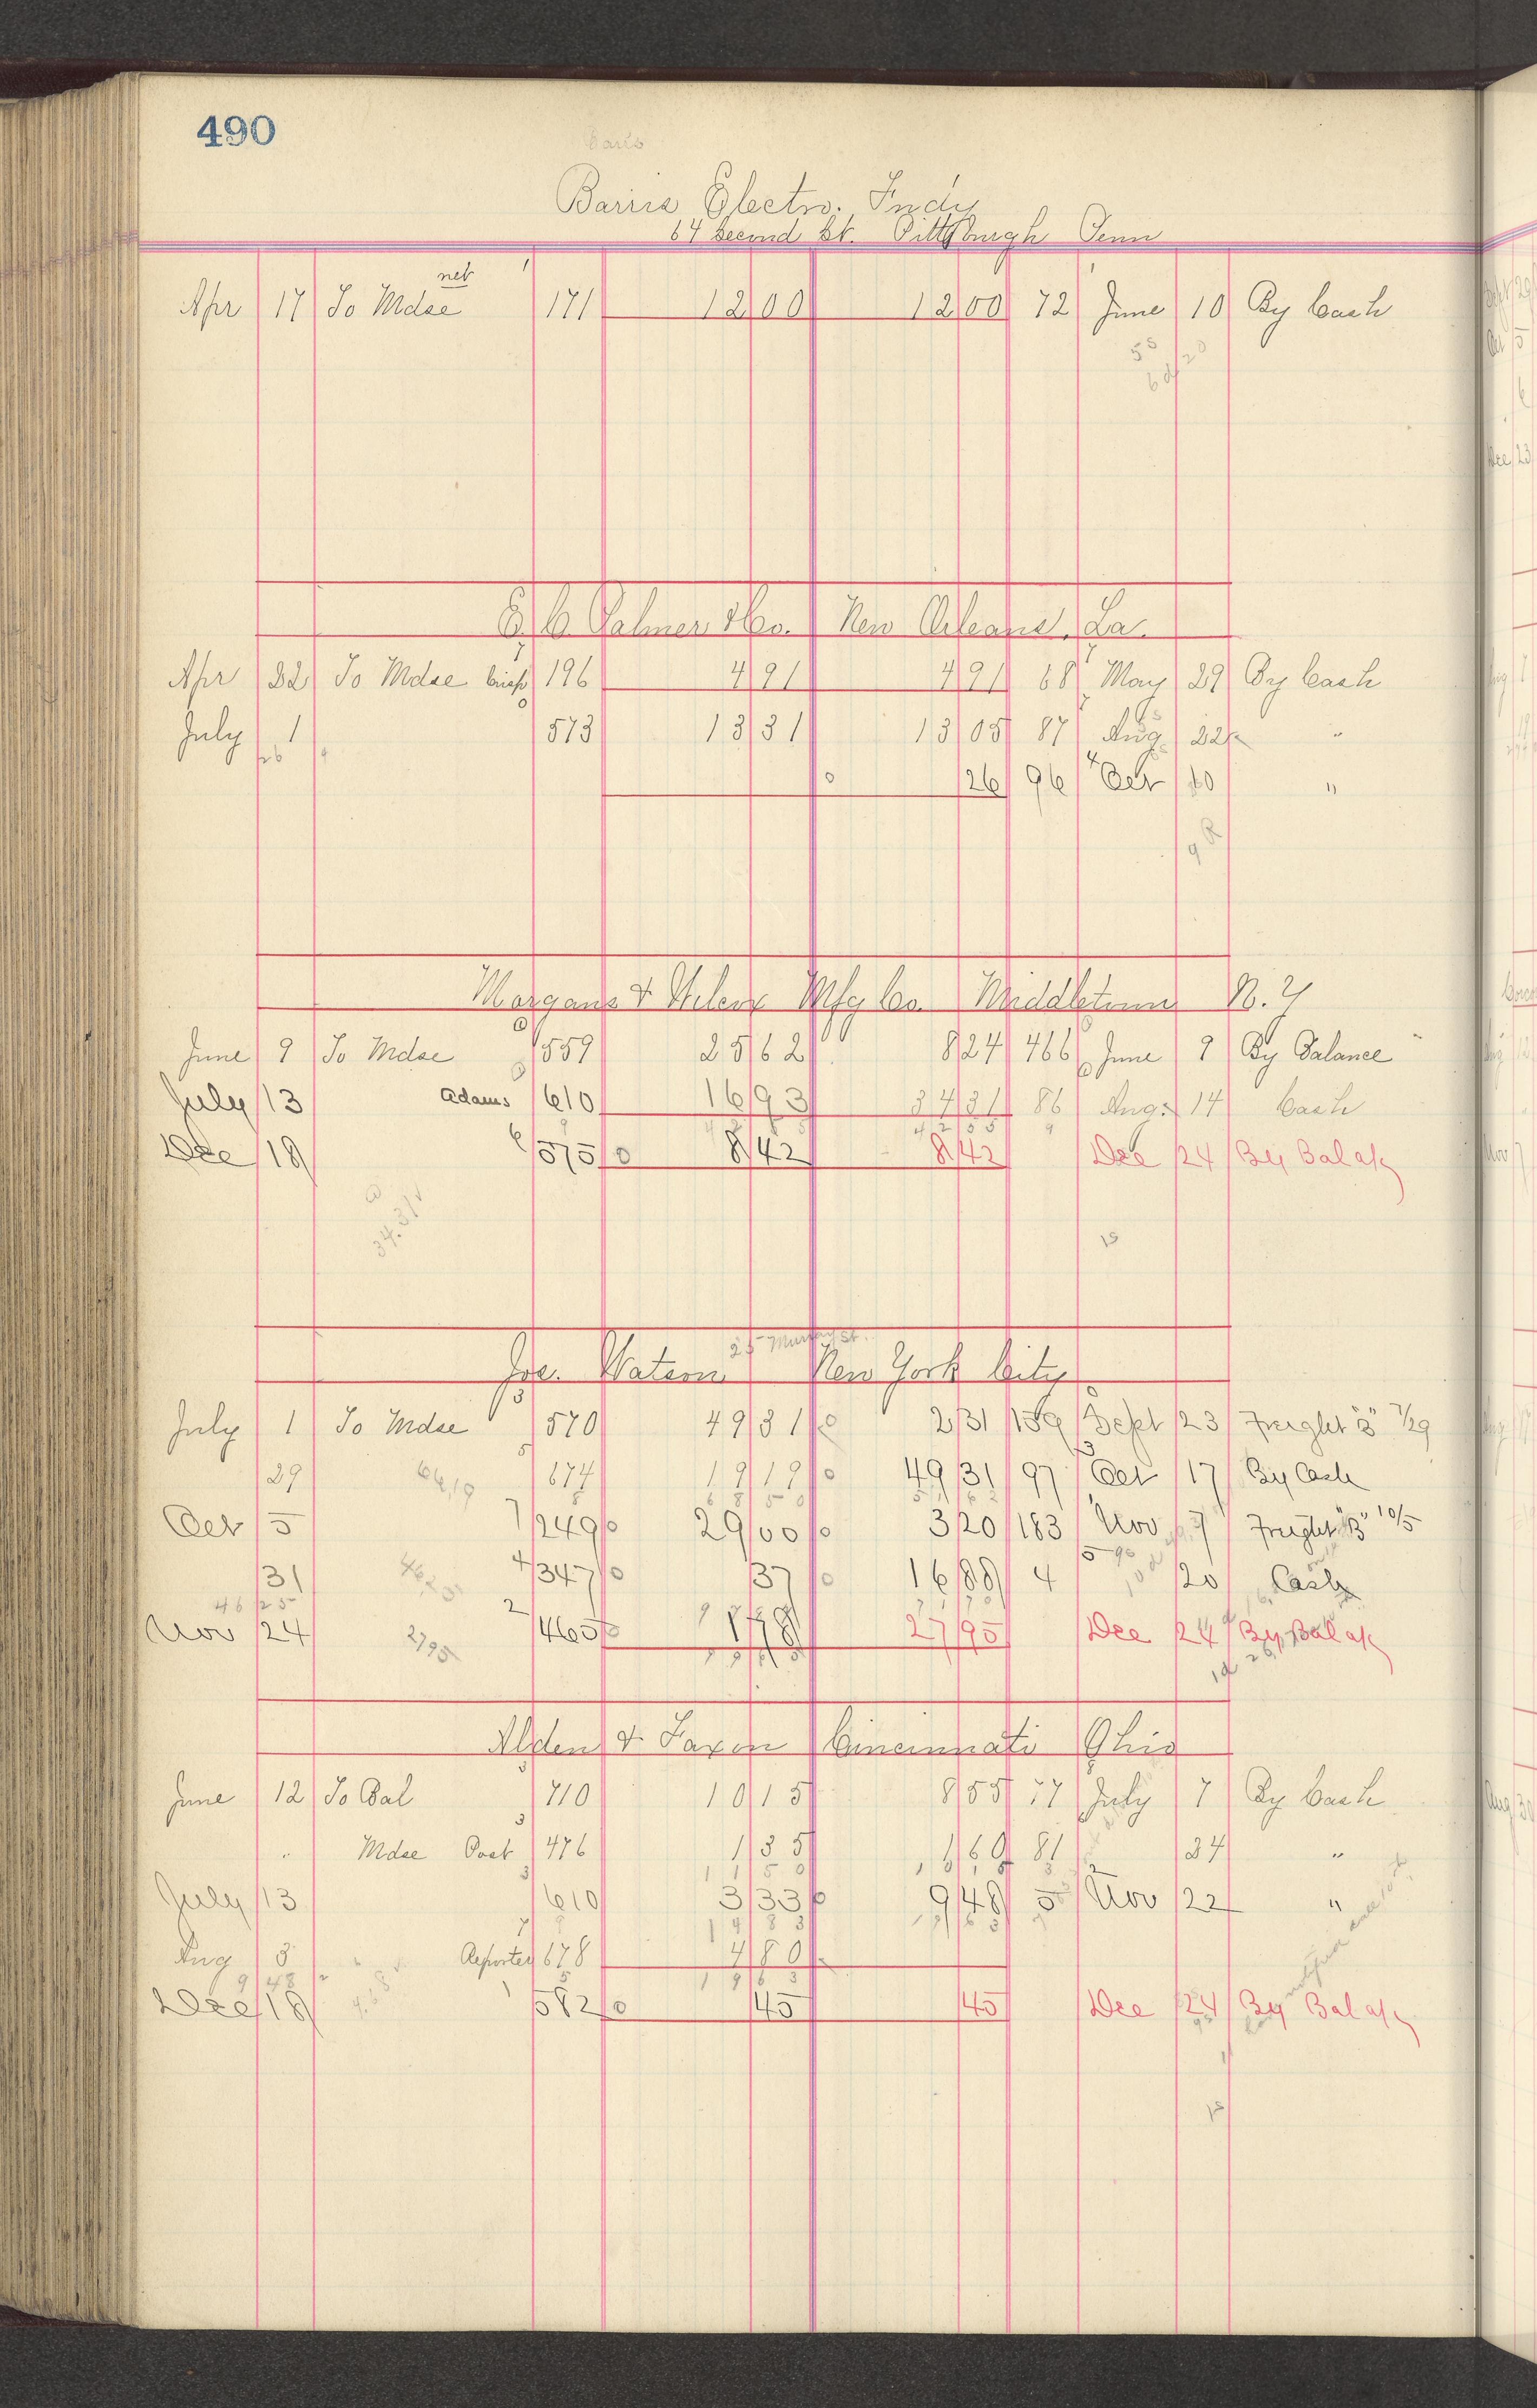 490
Electro. Fndy
64 Second St. Pittsburgh Penn
net
Apr 17 To Mdse 171 12 00 12 00 72 June 10 By Cash
E. C. Palmer & Co. New Orleans, La.
Apr 22 To Mdse 196 4 91 4 91 68 May 29 By Cash
July 1 573 13 31 13 05 87 Aug 22 "
26 96 Oct 10 "
Morgans & Wilcox Mfg Co. Middletown N. Y
June 9 To Mdse 559 25 62 8 24 466 June 9 By Balance
July 13 Adams 610 16 93 34 31 86 Aug. 14 Cash
42 55
Dec 18 575 8 42 8 42 Dec 24 By Bal a/c
34.31
25 Murray St.
Jos. Watson New York City
July 1 To Mdse 570 49 31 2 31 159 Sept 23 Freight "B" 7/29
29 674 19 19 49 31 97 Oct 17 By Cash
68 50
Oct 5 249 29 00 3 20 183 Nov 7 Freight "B" 10/5
31 347 37 16 88 4 20 Cash
46 25
Nov 24 465 1 78 27 95 Dec 24 By Bal a/c
2795
Alden & Faxon Cincinnati Ohio
June 12 To Bal 710 10 15 8 55 77 July 7 By Cash
" Mdse Post 476 1 35 1 60 81 24 "
11 50
July 13 610 3 33 9 48 5 Nov 22 "
14 83 19 63
Aug 3 Reporter 678 4 80
9 48 19 63
Dec 18 582 45 45 Dec 24 By Bal a/c